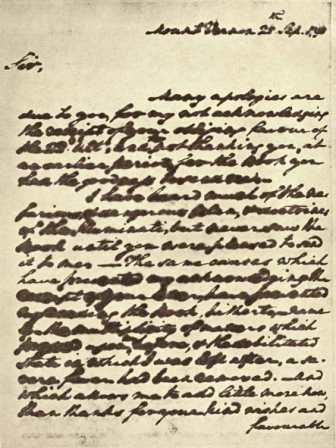 Mount Vernon 25th Sep. 1798
Sir,
Many apologies are
due to you, for my not acknowledging
the receipt of your obliging favour of
the 22d. Ult. & for not thanking you, at
an earlier period, for the Book you
had the goodness to send me.
I have heard much of the ne-
farious & dangerous plan, & doctrines
of the Illuminati, but never saw the
Book until you were pleased to send
it to me.— The same causes which
have prevented my acknowledging the
receipt of your letter, have prevented
my reading the Book, hitherto; namely
the multiplicity of matters which
pressed upon me before, & the debilitated
state in which I was left after, a se-
vere fever had been removed. And
which allows me to add little more now,
than thanks for your kind wishes and
favourable